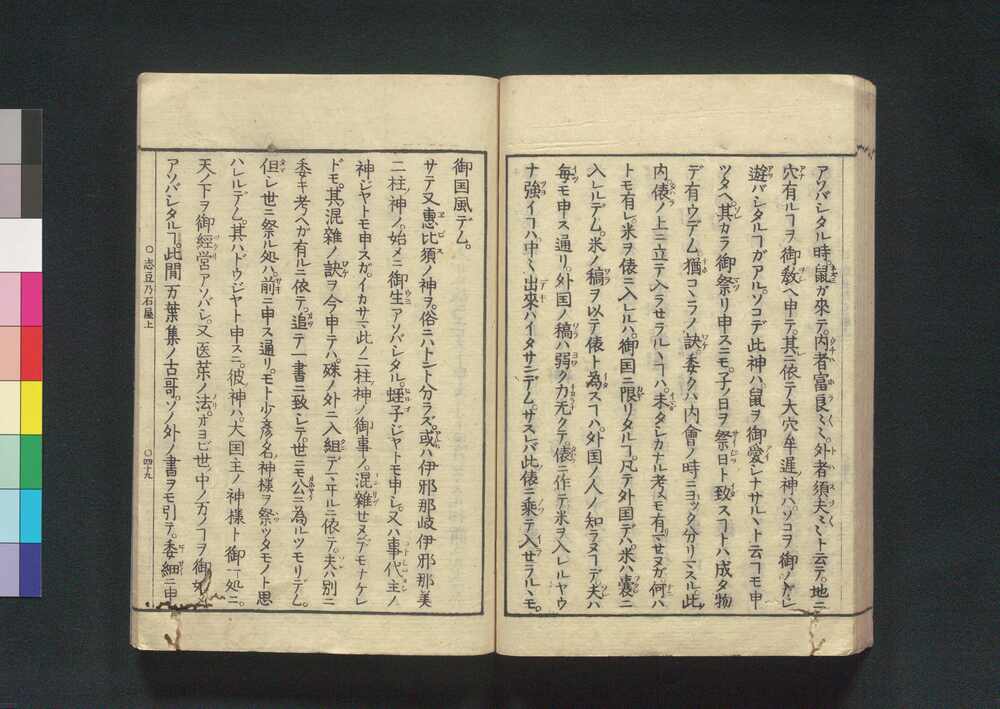 アソバシタル時。鼠ガ來テ。内者富良ミ〳〵。外者須夫ミ〳〵ト云テ。地ニ
穴有ルヿヲ御敎ヘ申テ。其ニ依テ大穴牟遲ノ神ハ。ソコヲ御ノガレ
遊バシタルヿガアル。ソコデ此神ハ。鼠ヲ御愛シナサルヽト云ヿモ申
ツタヘ。其カラ御祭リ申スニモ。子ノ日ヲ祭日ト致スヿトハ成タ物
デ有ウデム。猶コヽラノ訣委クハ内會ノ時ニヨック分リマスル。此
内俵ノ上ニ立テ入ラセラルヽヿハ。未タシカナル考ヘモ有マセヌガ。何ハ
トモ有レ。米ヲ俵ニ入レルハ。御国ニ限リタルヿ。凡テ外国デハ。米ハ囊ニ
入レルデム。米ノ稿ヲ以テ俵ト為スヿハ。外国ノ人ノ知ラヌヿデ。夫ハ
毎モ申ス通リ。外国ノ稿ハ弱ク力无クテ。俵ニ作テ米ヲ入レルヤウ
ナ強イヿハ。中〻出來ハイタサンデム。サスレバ此俵ニ乘テ入セラルヽモ。
御国風デム。
サテ又惠比須ノ神ヲ。俗ニハトント分ラズ。或ハ伊邪那岐伊邪那美
二柱ノ神ノ始メニ御生アソバシタル。蛭子ジャトモ申シ。又ハ事代主ノ
神ジャトモ申スガ。イカサマ此ノ二柱ノ神ノ御事ノ。混雜セヌデモナケレ
ドモ。其混雜ノ訣ヲ今申テハ。殊ノ外ニ入組デマヰルニ依テ。夫ハ別ニ
委キ考ヘガ有ルニ依テ。追テ一書ニ致シテ。世ニモ公ニ為ルツモリデム。
但シ世ニ祭ル処ハ。前ニ申ス通リ。モト少彥名ノ神様ヲ祭ツタモノト思
ハレルデム。其ハドウジャト申スニ。彼神ハ。大国主ノ神様ト御一処ニ。
天ノ下ヲ御經営アソバシ。又医藥ノ法オヨビ世ノ中ノ万ノヿヲ御始メ
アソバシタルヿ。此間万葉集ノ古哥。ソノ外ノ書ヲモ引テ。委細ニ申
○志豆乃石屋上
○四十九